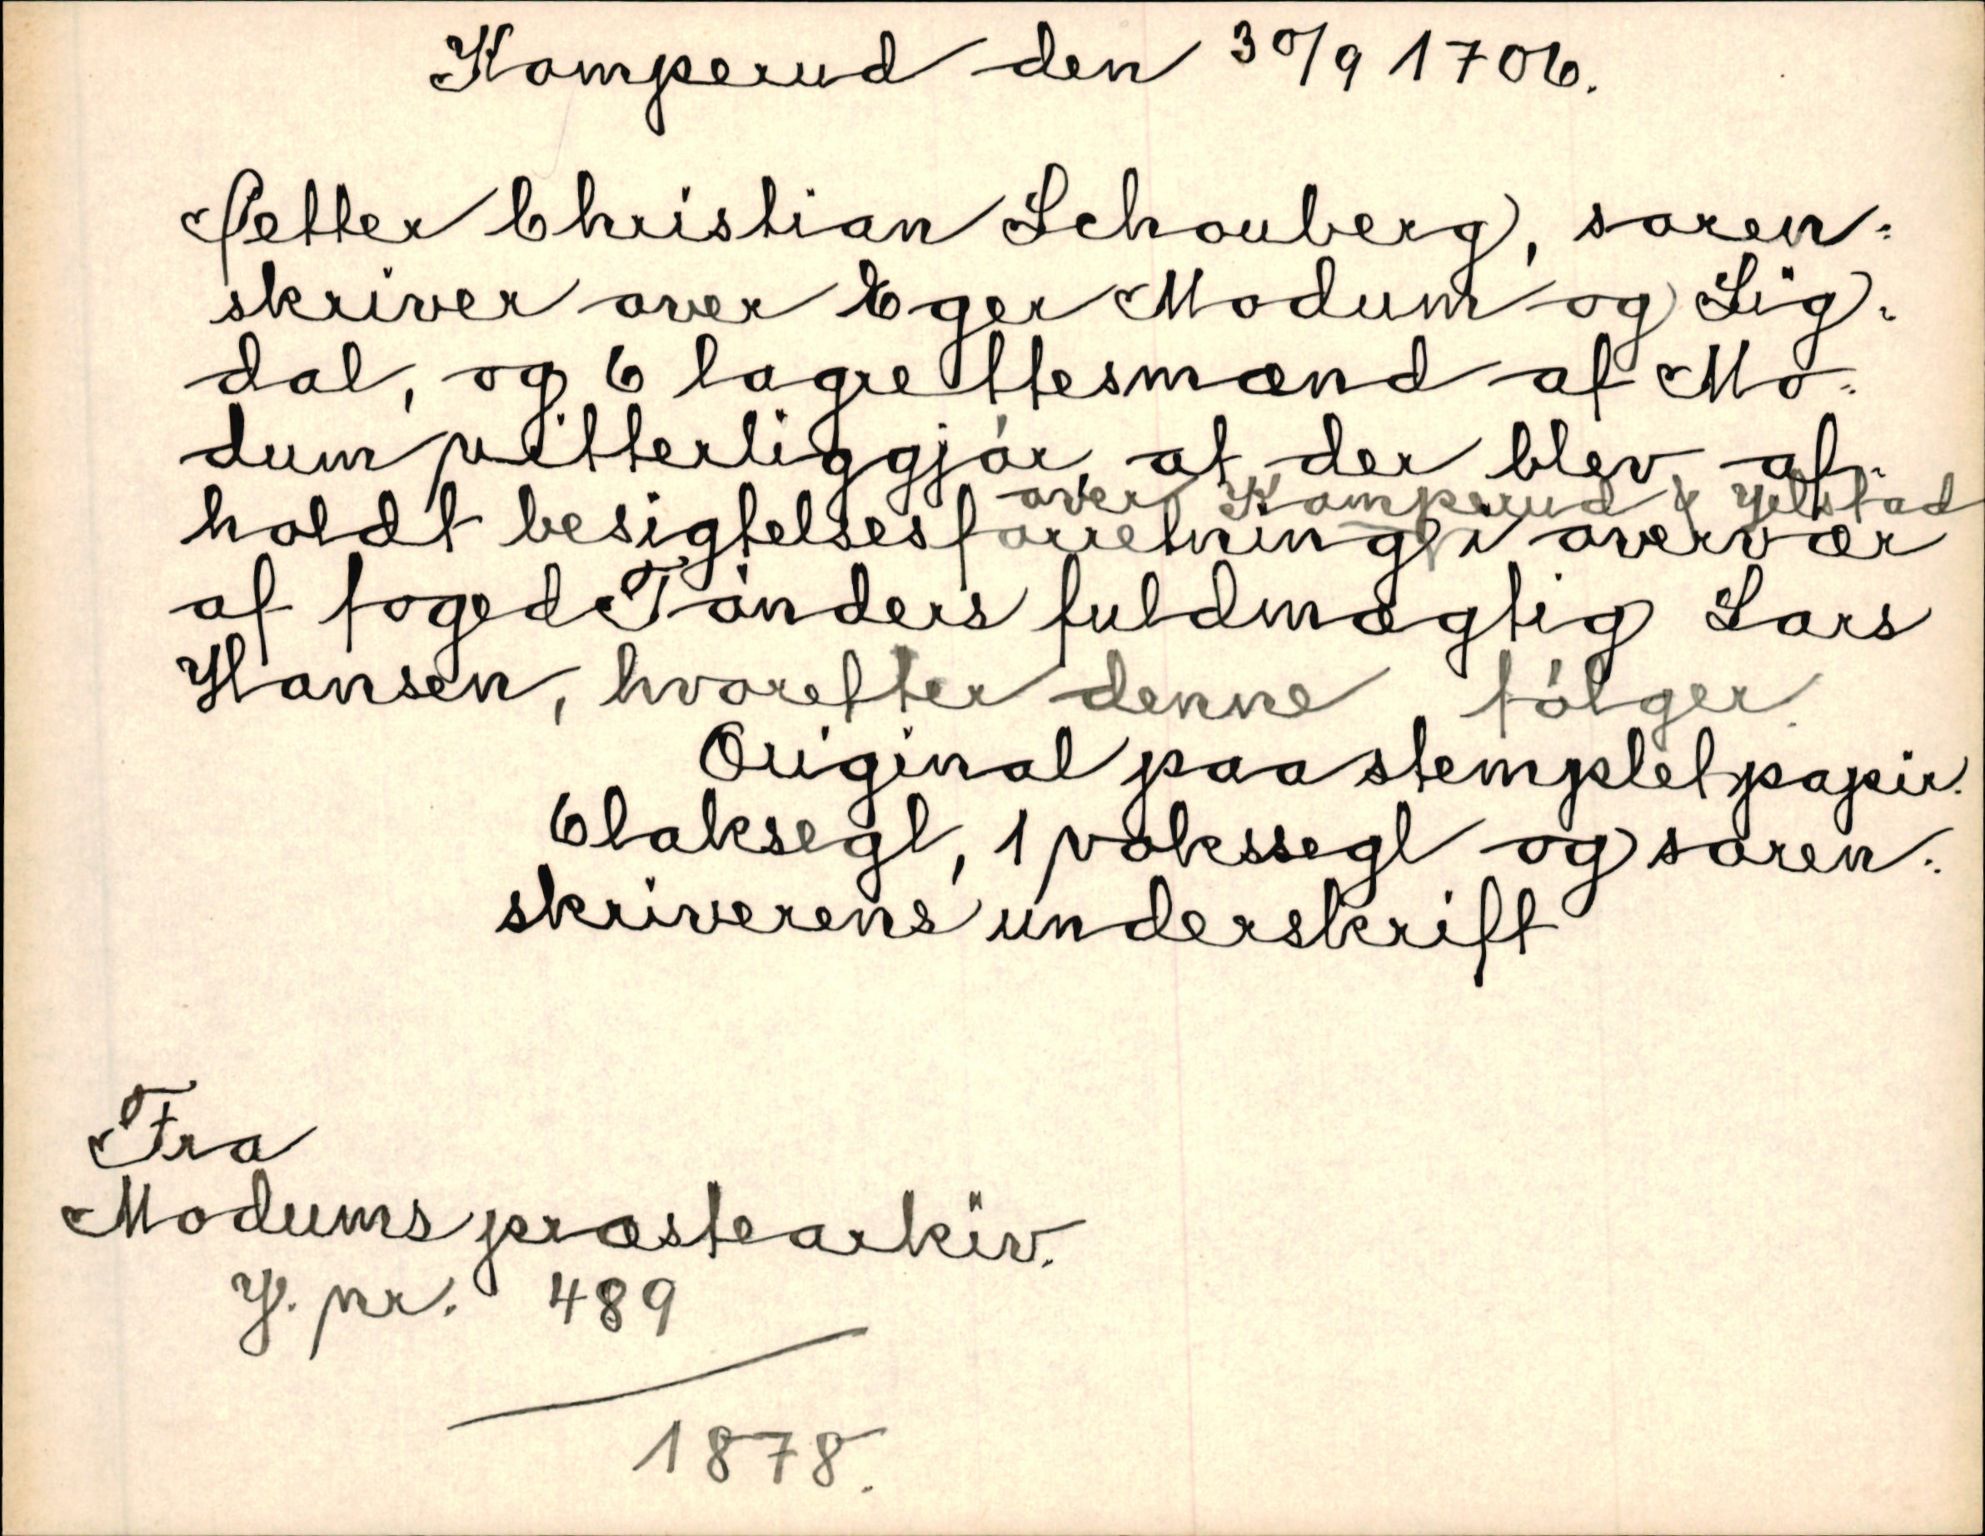 Komperud den 30/9 1706.
Petter Christian Schouberg, soren-
skriver over Eger Modum og Sig-
dal, og 6 lagrettesmænd af Mo-
dum vitterliggjør, at der blev af-
over Komperud & Jelstad
holdt besigtelsesforretning i overvær
af foged Tønders fuldmægtig Lars
Hansen, hvorefter denne følger.
Original paa stemplet papir.
6 laksegl, 1 vokssegl og soren-
skriverens underskrift
Fra
Modums præstearkiv.
J. nr. 489
1878.